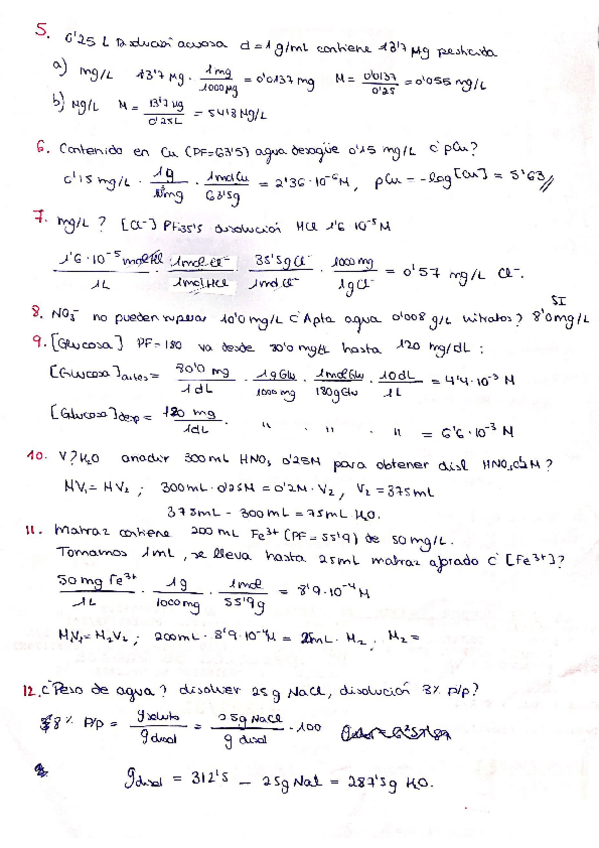 5. 0'25 L disolución acuosa d=1g/mL contiene 13'7 µg pesticida
a) mg/L 13'7 µg · 1mg / 1000µg = 0'0137 mg M = 0'0137 / 0'25 = 0'055 mg/L
b) µg/L M = 13'7 µg / 0'25L = 54'8 µg/L
6. Contenido en Cu (PF=63'5) agua desagüe 0'15 mg/L ¿ pCu?
0'15 mg/L · 1g / 10³mg · 1molCu / 63'5g = 2'36·10⁻⁶M, pCu = -log[Cu] = 5'63//
7. mg/L ? [Cl⁻] PF:35'5 disolución HCl 1'6 10⁻⁵M
1'6·10⁻⁵ mol HCl / 1L · 1mol Cl⁻ / 1mol HCl · 35'5g Cl⁻ / 1mol Cl⁻ · 1000 mg / 1g Cl⁻ = 0'57 mg/L Cl⁻.
8. NO₃⁻ no pueden superar 10'0 mg/L ¿Apta agua 0'008 g/L nitratos? 8'0mg/L SI
9. [Glucosa] PF=180 va desde 80'0 mg/dL hasta 120 mg/dL :
[Glucosa]antes = 80'0 mg / 1dL · 1gGlu / 1000 mg · 1molGlu / 180gGlu · 10dL / 1L = 4'4·10⁻³ M
[Glucosa]desp = 120 mg / 1dL · " · " · " = 6'6·10⁻³ M
10. V?H₂O anadir 300mL HNO₃ 0'25M para obtener disl HNO₃ 0'2M ?
MV₁ = MV₂ ; 300mL·0'25M = 0'2M·V₂, V₂ = 375mL
375mL - 300mL = 75mL H₂O.
11. Matraz contiene 200 mL Fe³⁺ (PF = 55'9) de 50 mg/L.
Tomamos 1mL, se lleva hasta 25mL matraz aforado ¿ [Fe³⁺]?
50 mg Fe³⁺ / 1L · 1g / 1000mg · 1mol / 55'9g = 8'9·10⁻⁴M
MV₁ = M₂V₂ ; 200mL·8'9·10⁻⁴M = 25mL·M₂ ; M₂ =
12. ¿Peso de agua? disolver 25g NaCl, disolución 8% p/p?
8% P/P = g soluto / g disol = 25g NaCl / g disol · 100
g disol = 312'5 - 25g NaCl = 287'5g H₂O.